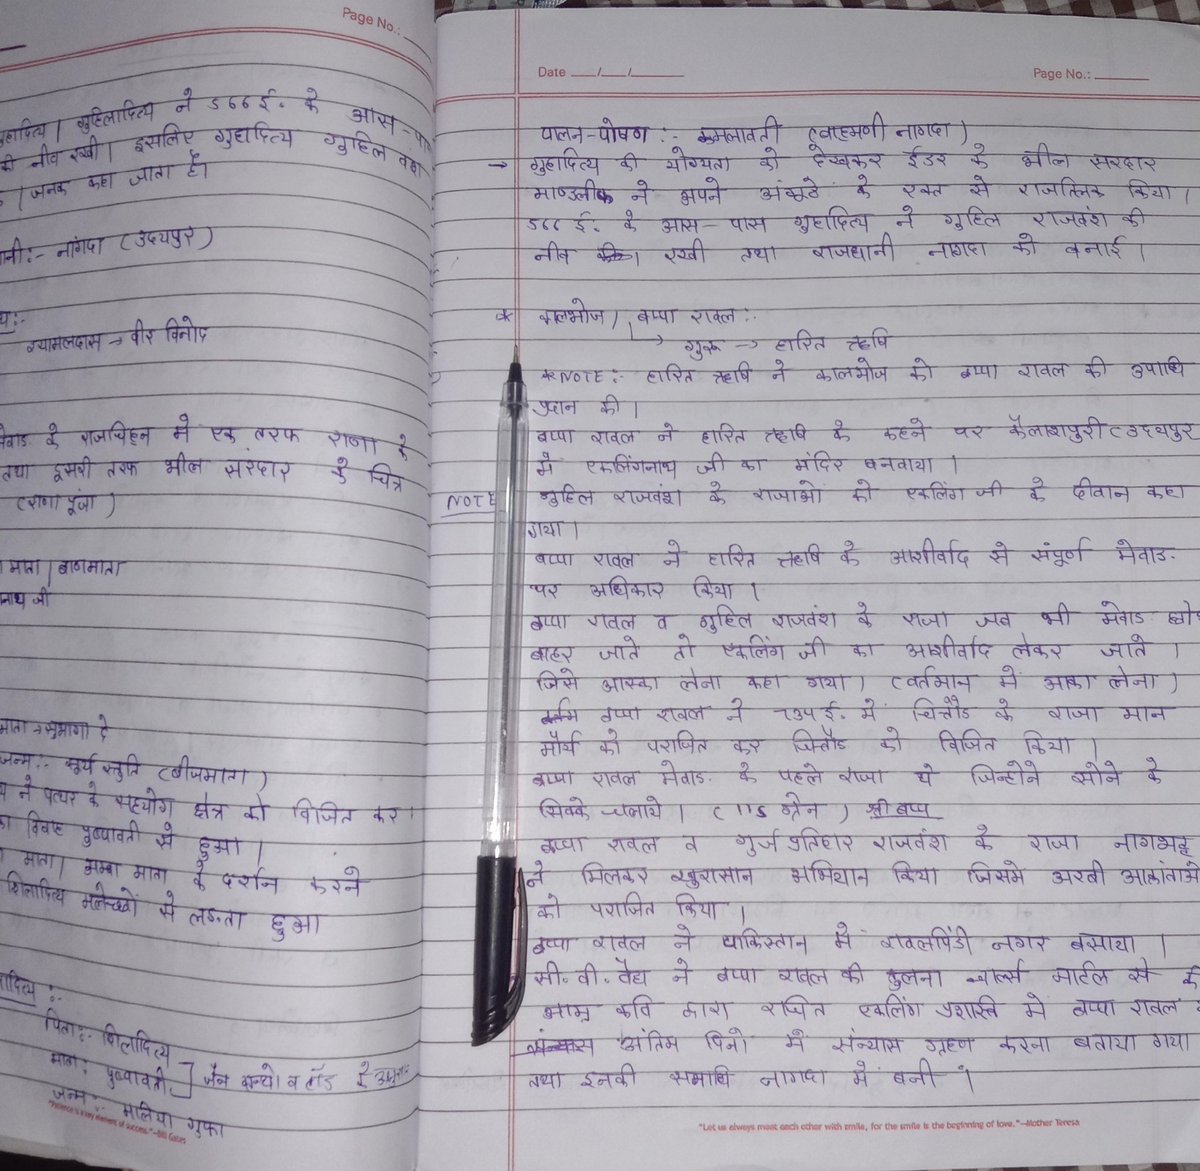 Page No.:
गुहादित्य / गुहिलादित्य ने 566 ई. के आस-पा
की नींव रखी। इसलिए गुहादित्य गुहिल वंश
/ जनक कहा जाता है।
नागदा (उदयपुर)
श्यामलदास → वीर विनोद
मेवाड के राजचिह्न में एक तरफ राजा के
तथा दूसरी तरफ भील सरदार के चित्र
(राणा पूंजा)
माता / बाणमाता
नाथ जी
माता → सुभागा दे
जन्म :- सूर्य स्तुति (बीजमाता)
ने पत्थर के सहयोग क्षेत्र को विजित कर
विवाह पुष्पावती से हुआ।
माता / अम्बा माता के दर्शन करने
शिलादित्य मलेच्छों से लडता हुआ
पिता :- शिलादित्य
माता : पुष्पावती
जैन ग्रन्थो व टॉड के अनु.
जन्म :- मालिया गुफा
"Patience is a key element of success."–Bill Gates
Date ___/___/______
Page No.: ______
पालन-पोषण :- कमलावती (ब्राह्मणी नागदा)
→ गुहादित्य की योग्यता को देखकर ईडर के भील सरदार
माण्डलीक ने अपने अंगूठे के रक्त से राजतिलक किया।
566 ई. के आस-पास गुहादित्य ने गुहिल राजवंश की
नींव रखी तथा राजधानी नागदा को बनाई।
* कालभोज / बप्पा रावल :-
→ गुरू → हारित ऋषि
*NOTE :- हारित ऋषि ने कालभोज को बप्पा रावल की उपाधि
प्रदान की।
बप्पा रावल ने हारित ऋषि के कहने पर कैलाशपुरी (उदयपुर
में एकलिंगनाथ जी का मंदिर बनवाया।
NOTE गुहिल राजवंश के राजाओं को एकलिंग जी के दीवान कहा
गया।
बप्पा रावल ने हारित ऋषि के आशीर्वाद से संपूर्ण मेवाड
पर अधिकार किया।
बप्पा रावल व गुहिल राजवंश के राजा जब भी मेवाड छो
बाहर जाते तो एकलिंग जी का आशीर्वाद लेकर जाते।
जिसे आस्का लेना कहा गया। (वर्तमान में आका लेना)
बप्पा रावल ने 734 ई. में चित्तौड के राजा मान
मौर्य को पराजित कर चित्तौड को विजित किया।
बप्पा रावल मेवाड के पहले राजा थे जिन्होने सोने के
सिक्के चलाये। (115 ग्रेन) श्री बप्प
बप्पा रावल व गुर्जर प्रतिहार राजवंश के राजा नागभट्ट
ने मिलकर खुरासान अभियान किया जिसमे अरबी आक्रांताओ
को पराजित किया।
बप्पा रावल ने पाकिस्तान में रावलपिंडी नगर बसाया।
सी. वी. वैद्य ने बप्पा रावल की तुलना चार्ल्स मार्टल से की
आम्र कवि द्वारा रचित एकलिंग प्रशस्ति में बप्पा रावल
अंतिम दिनो में संन्यास ग्रहण करना बताया गया
तथा इनकी समाधि नागदा में बनी।
"Let us always meet each other with smile, for the smile is the beginning of love."–Mother Teresa